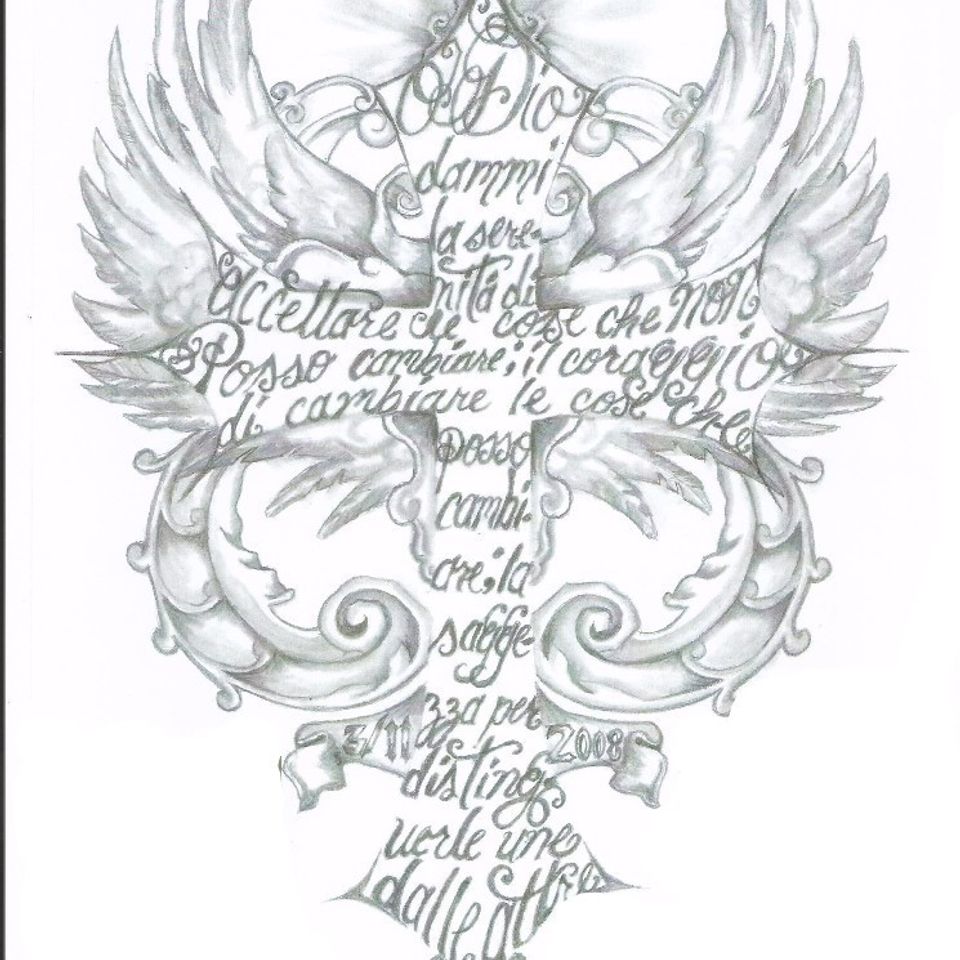 O Dio
dammi
la sere-
nità di
accettare le cose che non
posso cambiare; il coraggio
di cambiare le cose che
posso
cambi-
are; la
sagge-
zza per
3/11 2008
disting-
uerle une
dalle altre